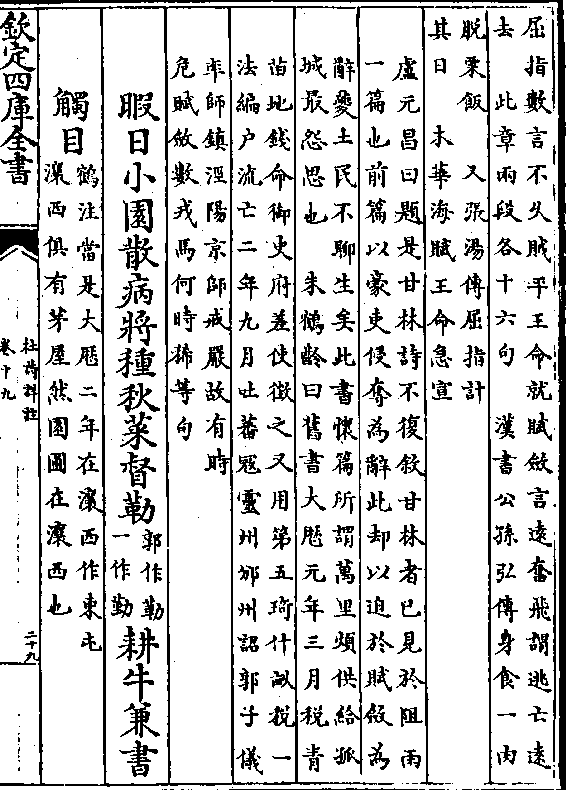 屈指數言不久賊平王命就賦斂言遠奮飛謂逃亡遠
去　此章兩段各十六句　漢書公孫弘傳身食一肉
脱粟飯　又張湯傳屈指計
其日　木華海賦王命急宣
盧元昌曰題是甘林詩不復敘甘林者已見於阻雨
一篇也前篇以豪吏侵奪為辭此却以迫於賦斂為
辭夔土民不聊生矣此書懷篇所謂萬里煩供給孤
城最怨思也　朱鶴齡曰舊書大厯元年三月稅青
苗地錢命御史府差使徵之又用第五琦什畝稅一
法編户流亡二年九月吐蕃冦靈州邠州詔郭子儀
率師鎮涇陽京師戒嚴故有時
危賦斂數戎馬何時稀等句
暇日小園散病將種秋菜督勒郭作勤一作勤耕牛兼書
觸目鶴注當是大厯二年在瀼西作東屯瀼西俱有茅屋然園圃在瀼西也
欽定四庫全書
杜詩詳註
卷十九
二十九